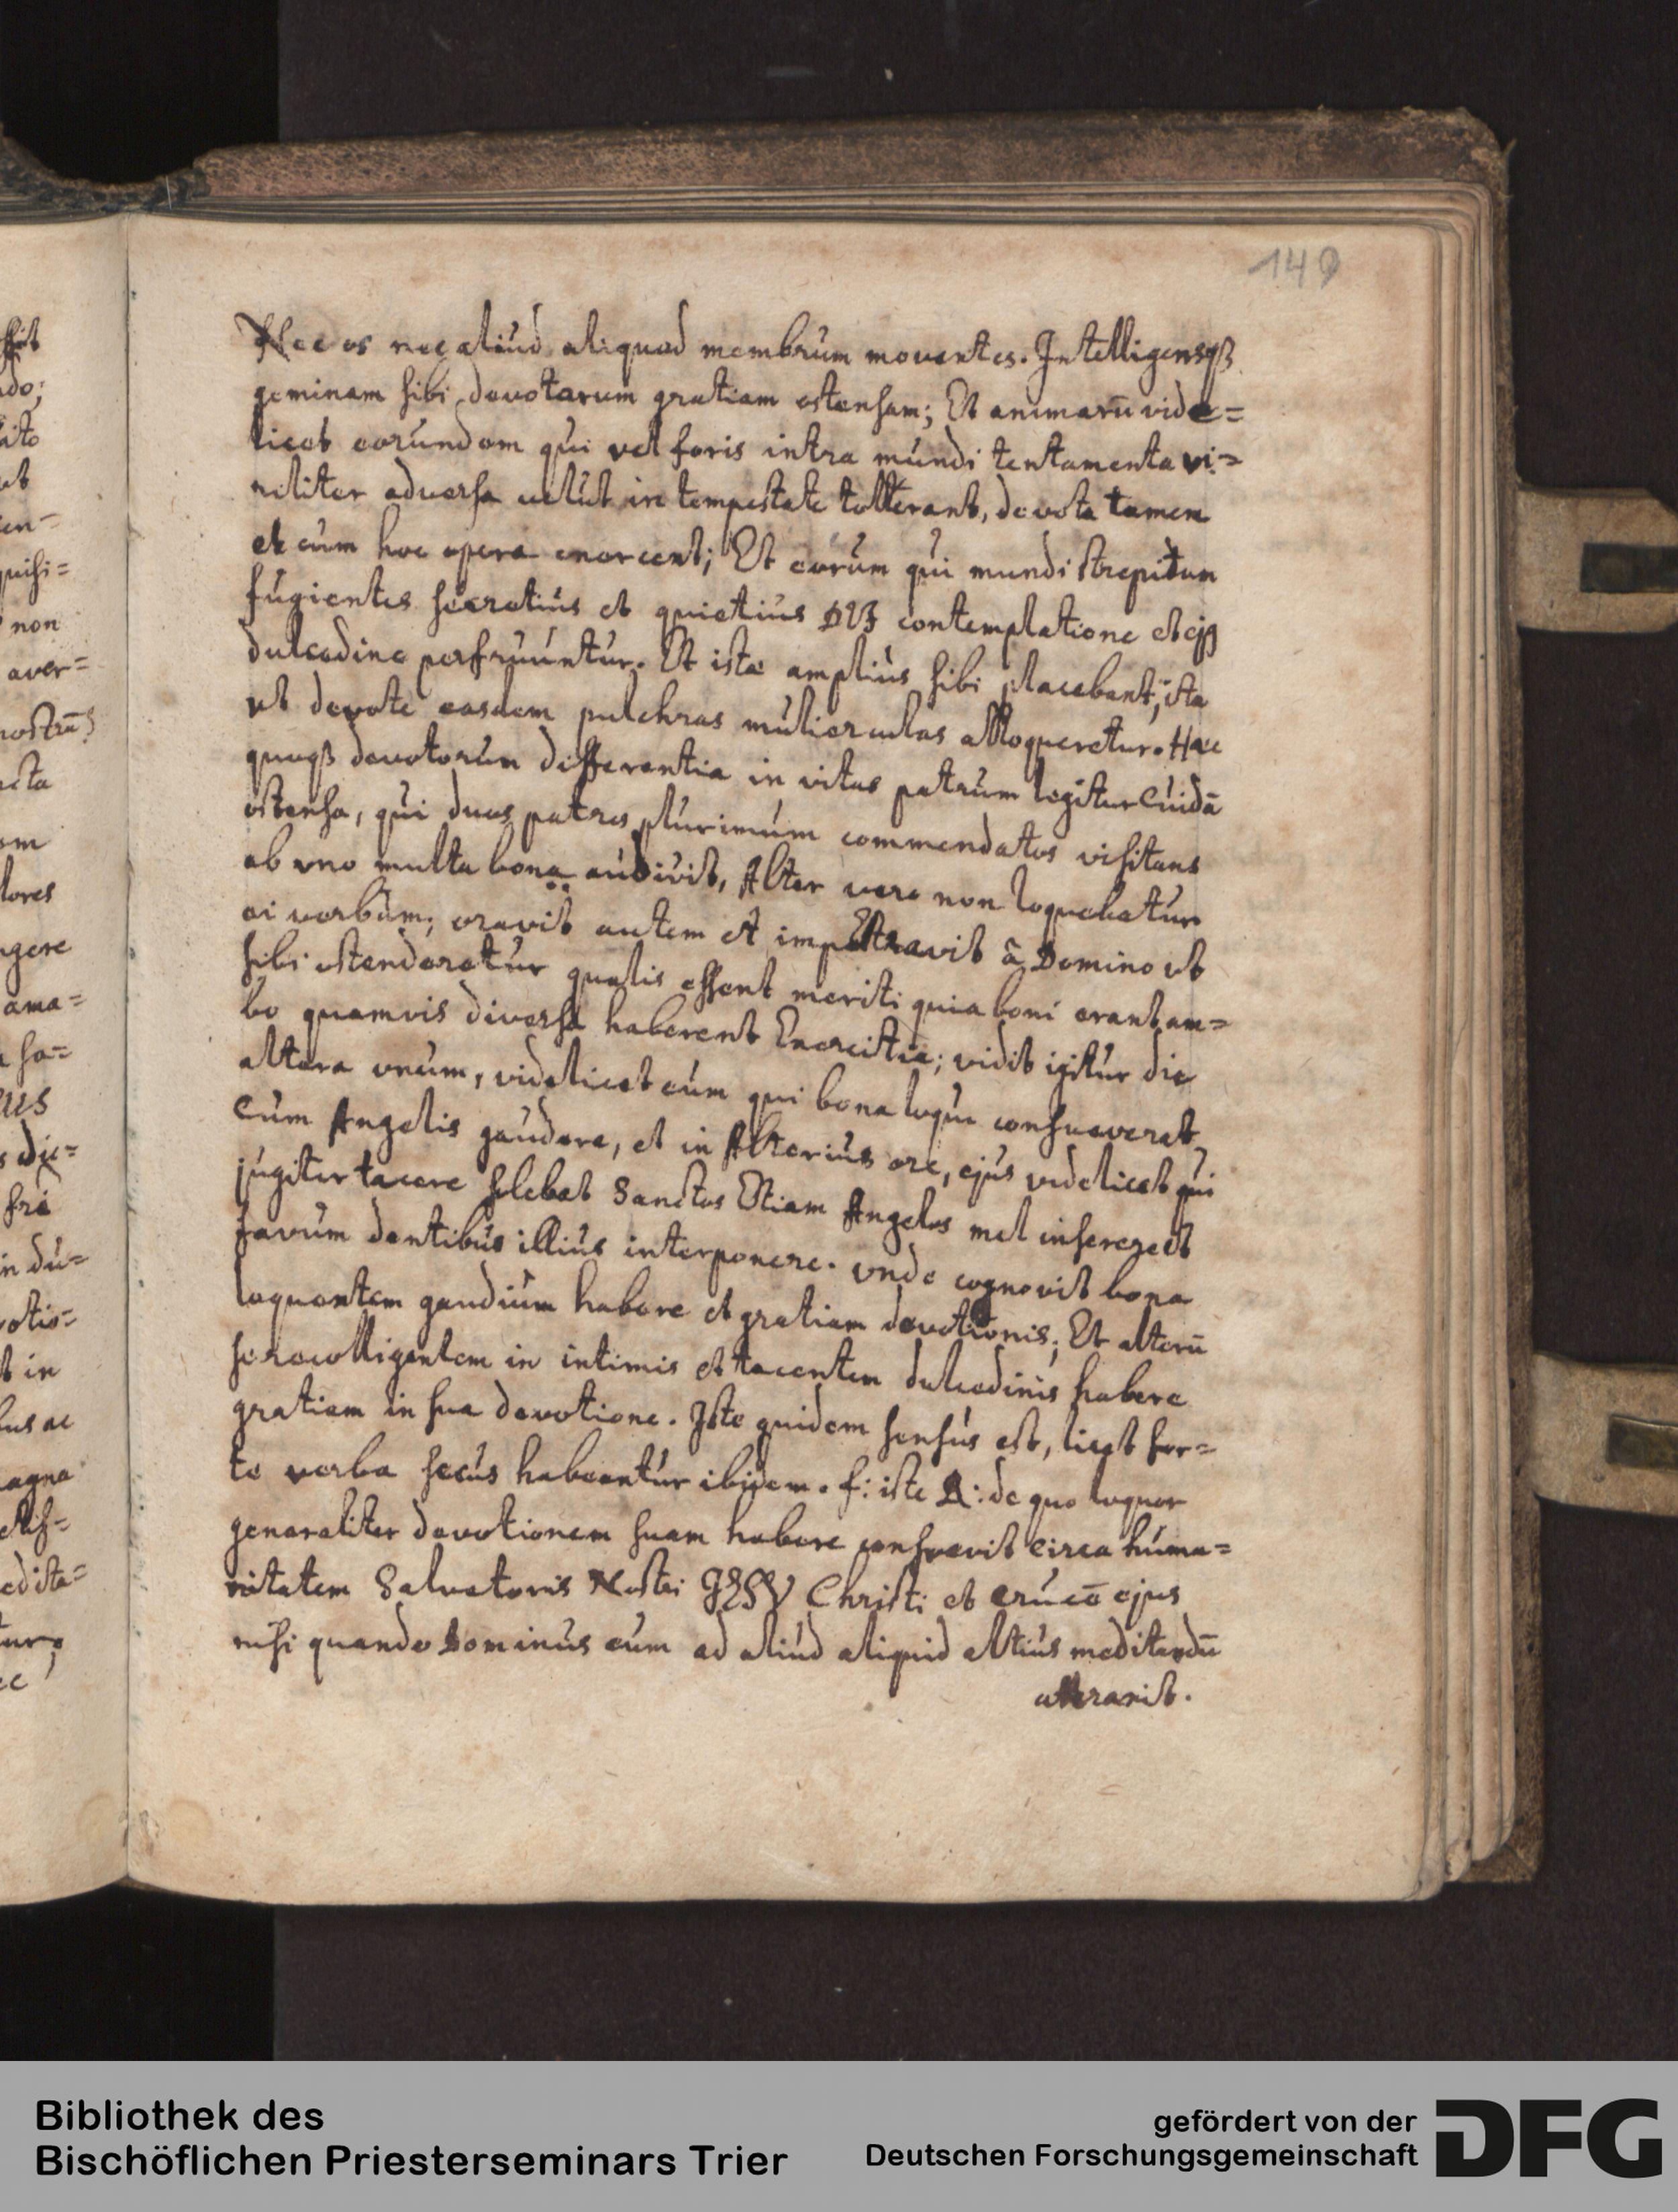 149
Nec os nec aliud aliquod membrum moventes. Intelligensqß
geminam sibi devotarum gratiam ostensam; Et animarū vide=
licet eorundem qui vel foris intra mundi tentamenta vi=
riliter adversa velut in tempestate tollerant, devota tamen
et cum hoc opera exercent; Et eorum qui mundi strepitum
fugientes secretius et quietius DEI contemplatione et ejß
dulcedine perfruuntur. Et istæ amplius sibi placebant, ita
ut devote easdem pulchras mulierculas alloqueretur. Hæc
quoqß devotorum differentia in vitas patrum legitur Cuidā
ostensa, qui duos patres plurimum commendatos visitans
ab vno multa bona audivit, Alter vero non loquebatur
ei verbum; oravit autem et impetravit â Domino ut
sibi ostenderetur qualis essent meriti quia boni erant am=
bo quamvis diversa haberent Exercitia; vidit igitur die
altera vnum, videlicet eum qui bona loqui consueverat
Cum Angelis gaudere, et in Alterius ore, ejus videlicet qui
jugiter tacere solebat Sanctos Etiam Angelos mel inserere et
favum dentibus illius interponere. vnde cognovit bona
loquentem gaudium habere et gratiam devotionis; Et alterū
se recolligentem in intimis et tacentem dulcedinis habere
gratiam in sua devotione. Iste quidem sensus est, licet for=
te verba secus habeantur ibidem. f: iste R: de quo loquor
generaliter devotionem suam habere consuevit Circa huma=
nitatem Salvatoris Nostri JESV Christi et crucē ejus
nisi quando Dominus eum ad aliud aliquid altius meditandū
attraxit.
ndo;
en=
quisi=
non
aver=
nostrū
lores
ama=
in du=
votio=
in
magna
Bibliothek des
Bischöflichen Priesterseminars Trier
gefördert von der
Deutschen Forschungsgemeinschaft
DFG